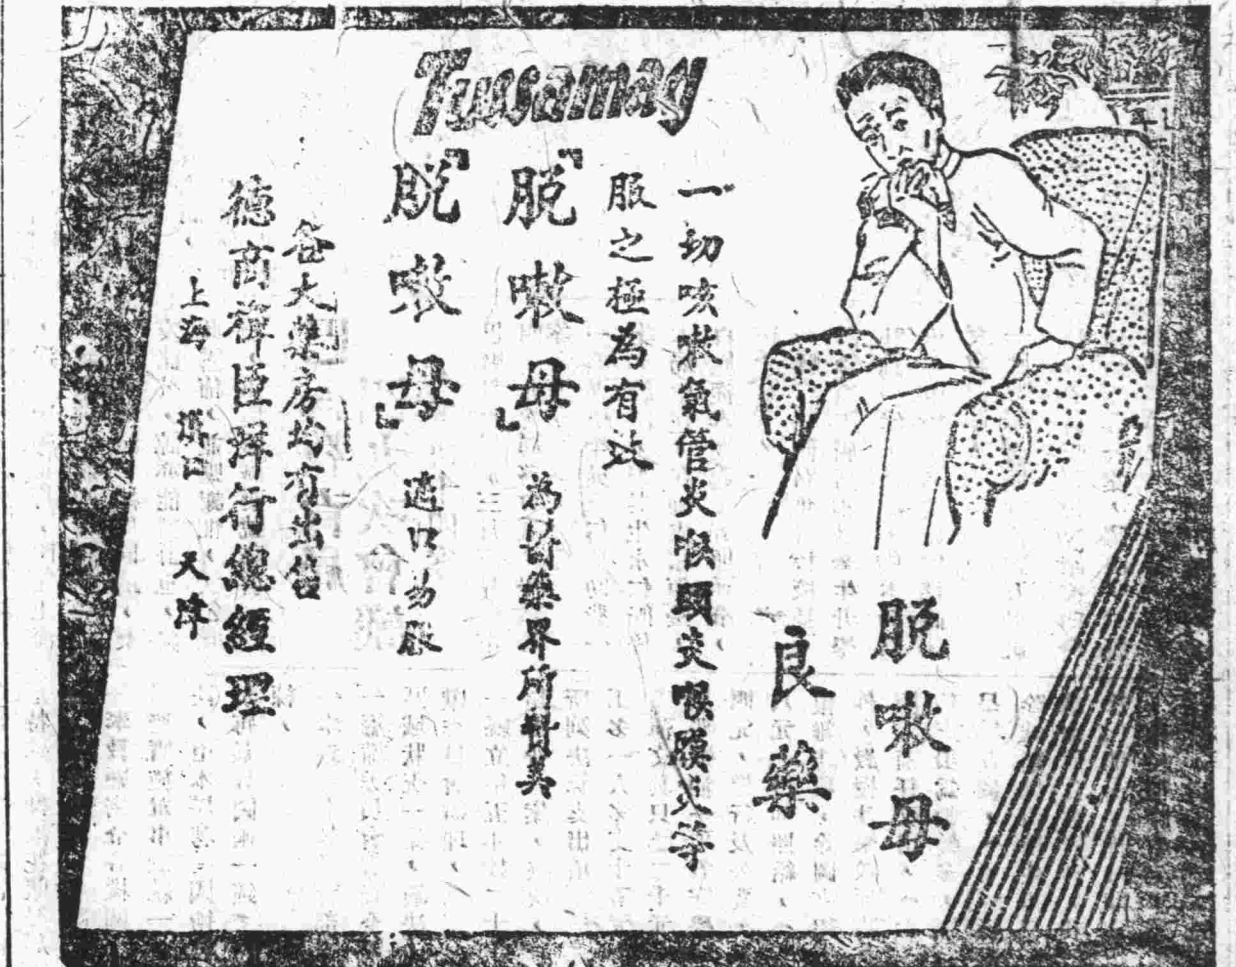 Tussamag
脫嗽母
良藥
一切咳嗽氣管炎喉頭炎喉膜炎等
服之極為有效
「脫嗽母」為醫藥界所贊美
「脫嗽母」適口易服
各大藥房均有出售
德商禪臣洋行總經理
上海 漢口 天津